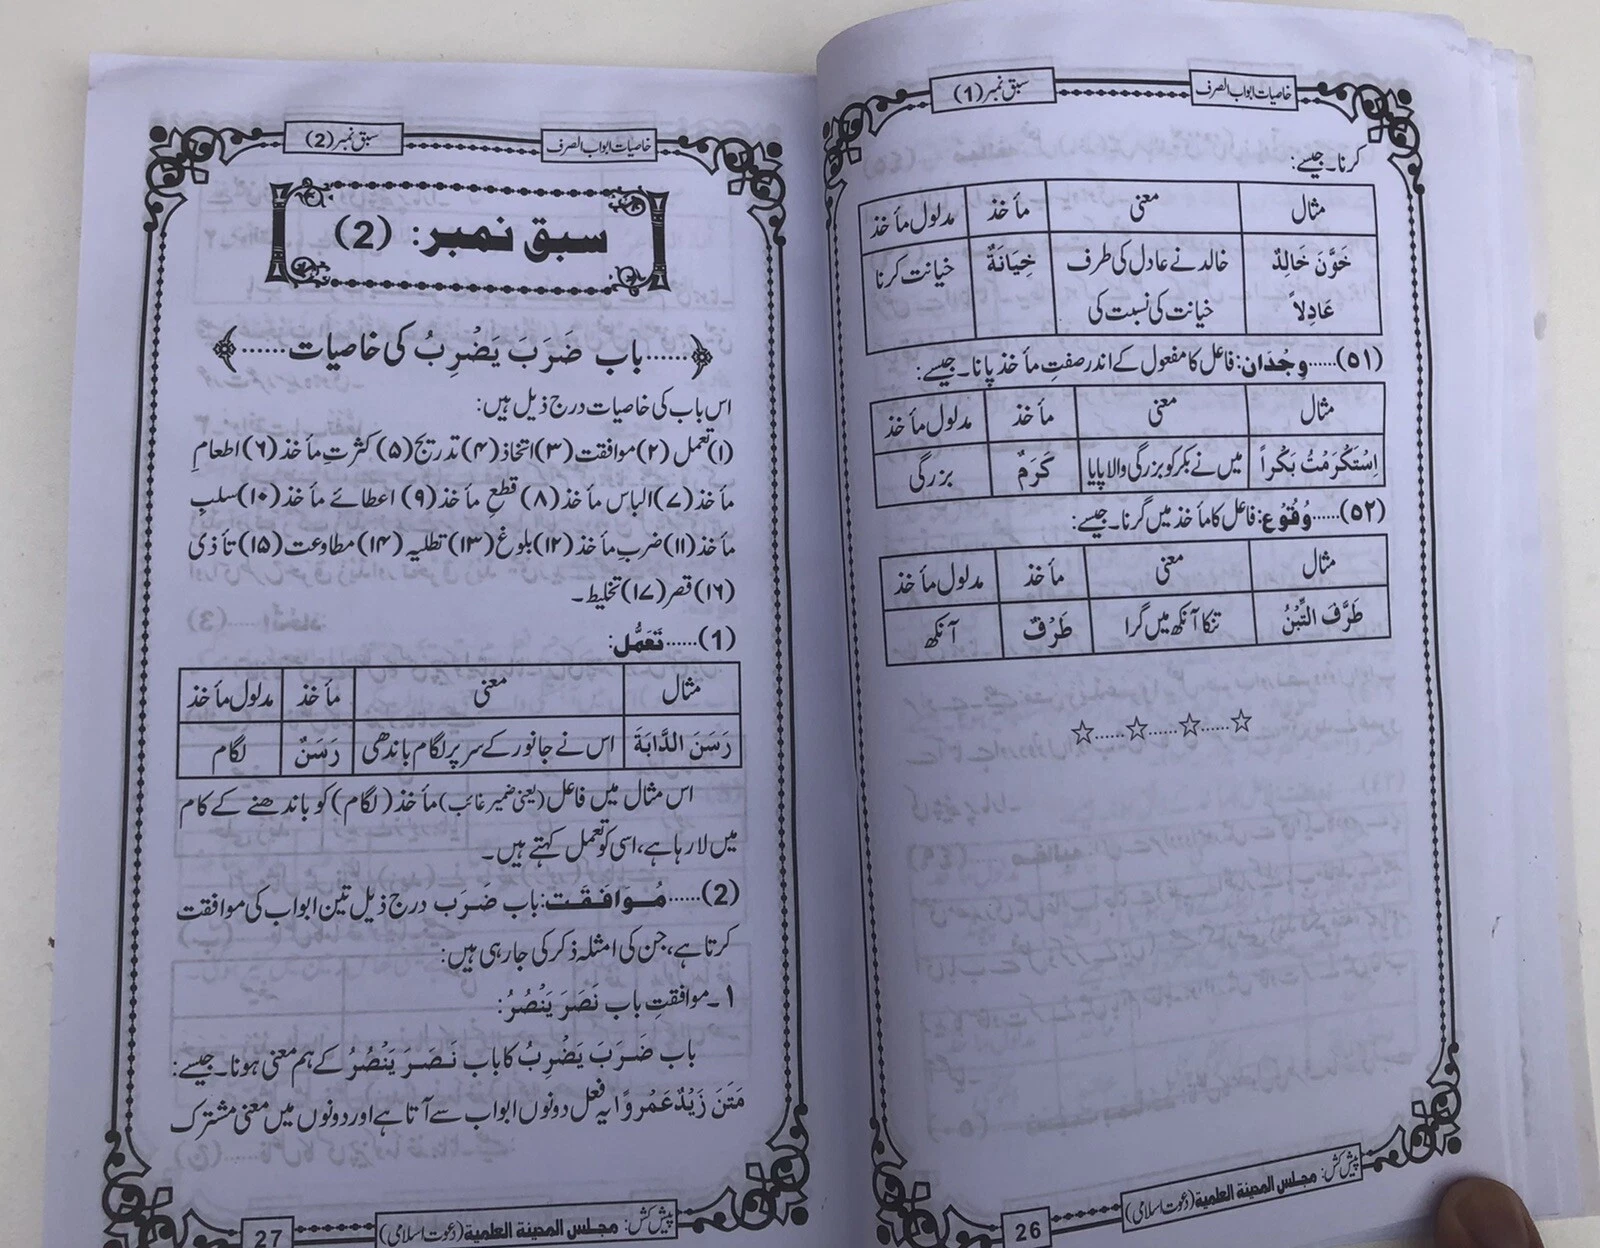 خاصیات ابواب الصرف
سبق نمبر (1)
کرنا۔ جیسے:
مثال معنی مأخذ مدلول مأخذ
خَوَّنَ خَالِدٌ خالد نے عادل کی طرف خِيَانَةٌ خیانت کرنا
عَادِلاً خیانت کی نسبت کی
(۵۱)......وِجْدَان: فاعل کا مفعول کے اندر صفتِ مأخذ پانا۔ جیسے:
مثال معنی مأخذ مدلول مأخذ
اِسْتَكْرَمْتُ بَكْراً میں نے بکر کو بزرگی والا پایا كَرَمٌ بزرگی
(۵۲)......وُقُوْع: فاعل کا مأخذ میں گرنا۔ جیسے:
مثال معنی مأخذ مدلول مأخذ
طَرَّفَ التِّبْنُ تنکا آنکھ میں گرا طَرْفٌ آنکھ
☆......☆......☆......☆
پیش کش: مجلس المدينة العلمية (دعوت اسلامی)
26
خاصیات ابواب الصرف
سبق نمبر (2)
سبق نمبر: (2)
......باب ضَرَبَ يَضْرِبُ کی خاصیات......
اس باب کی خاصیات درج ذیل ہیں:
(۱) تعمل (۲) موافقت (۳) اتخاذ (۴) تدریج (۵) کثرتِ مأخذ (۶) اطعامِ
مأخذ (۷) الباس مأخذ (۸) قطعِ مأخذ (۹) اعطائے مأخذ (۱۰) سلبِ
مأخذ (۱۱) ضربِ مأخذ (۱۲) بلوغ (۱۳) تطلیہ (۱۴) مطاوعت (۱۵) تأذی
(۱۶) قصر (۱۷) تخلیط۔
(1)......تَعَمُّل:
مثال معنی مأخذ مدلول مأخذ
رَسَنَ الدَّابَةَ اس نے جانور کے سر پر لگام باندھی رَسَنٌ لگام
اس مثال میں فاعل (یعنی ضمیر غائب) مأخذ (لگام) کو باندھنے کے کام
میں لا رہا ہے، اسی کو تعمل کہتے ہیں۔
(2)......مُوَافَقَت: باب ضَرَبَ درج ذیل تین ابواب کی موافقت
کرتا ہے، جن کی امثلہ ذکر کی جارہی ہیں:
۱۔ موافقتِ باب نَصَرَ يَنْصُرُ:
باب ضَرَبَ يَضْرِبُ کا باب نَصَرَ يَنْصُرُ کے ہم معنی ہونا۔ جیسے:
مَتَنَ زَيْدٌ عَمْروًا یہ فعل دونوں ابواب سے آتا ہے اور دونوں میں معنی مشترک
پیش کش: مجلس المدينة العلمية (دعوت اسلامی)
27